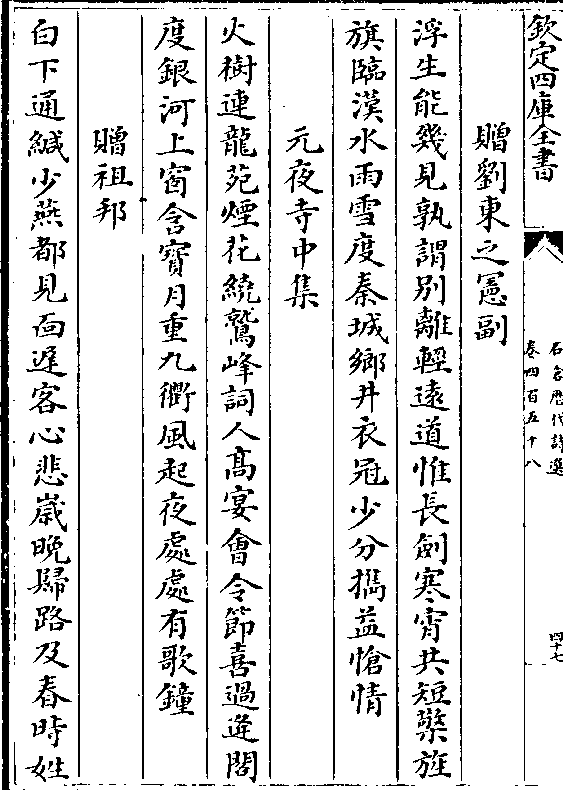 欽定四庫全書
石倉歷代詩選
卷四百五十八
四十七
贈劉東之憲副
浮生能幾見孰謂别離輕遠道惟長劍寒宵共短檠旌
旗臨漠水雨雪度秦城鄉井衣冠少分攜益愴情
元夜寺中集
火樹連龍苑煙花繞鷲峰詞人髙宴會令節喜過逄閣
度銀河上窗含寶月重九衢風起夜處處有歌鐘
贈祖邦
白下通緘少燕都見面遲客心悲嵗晚歸路及春時姓